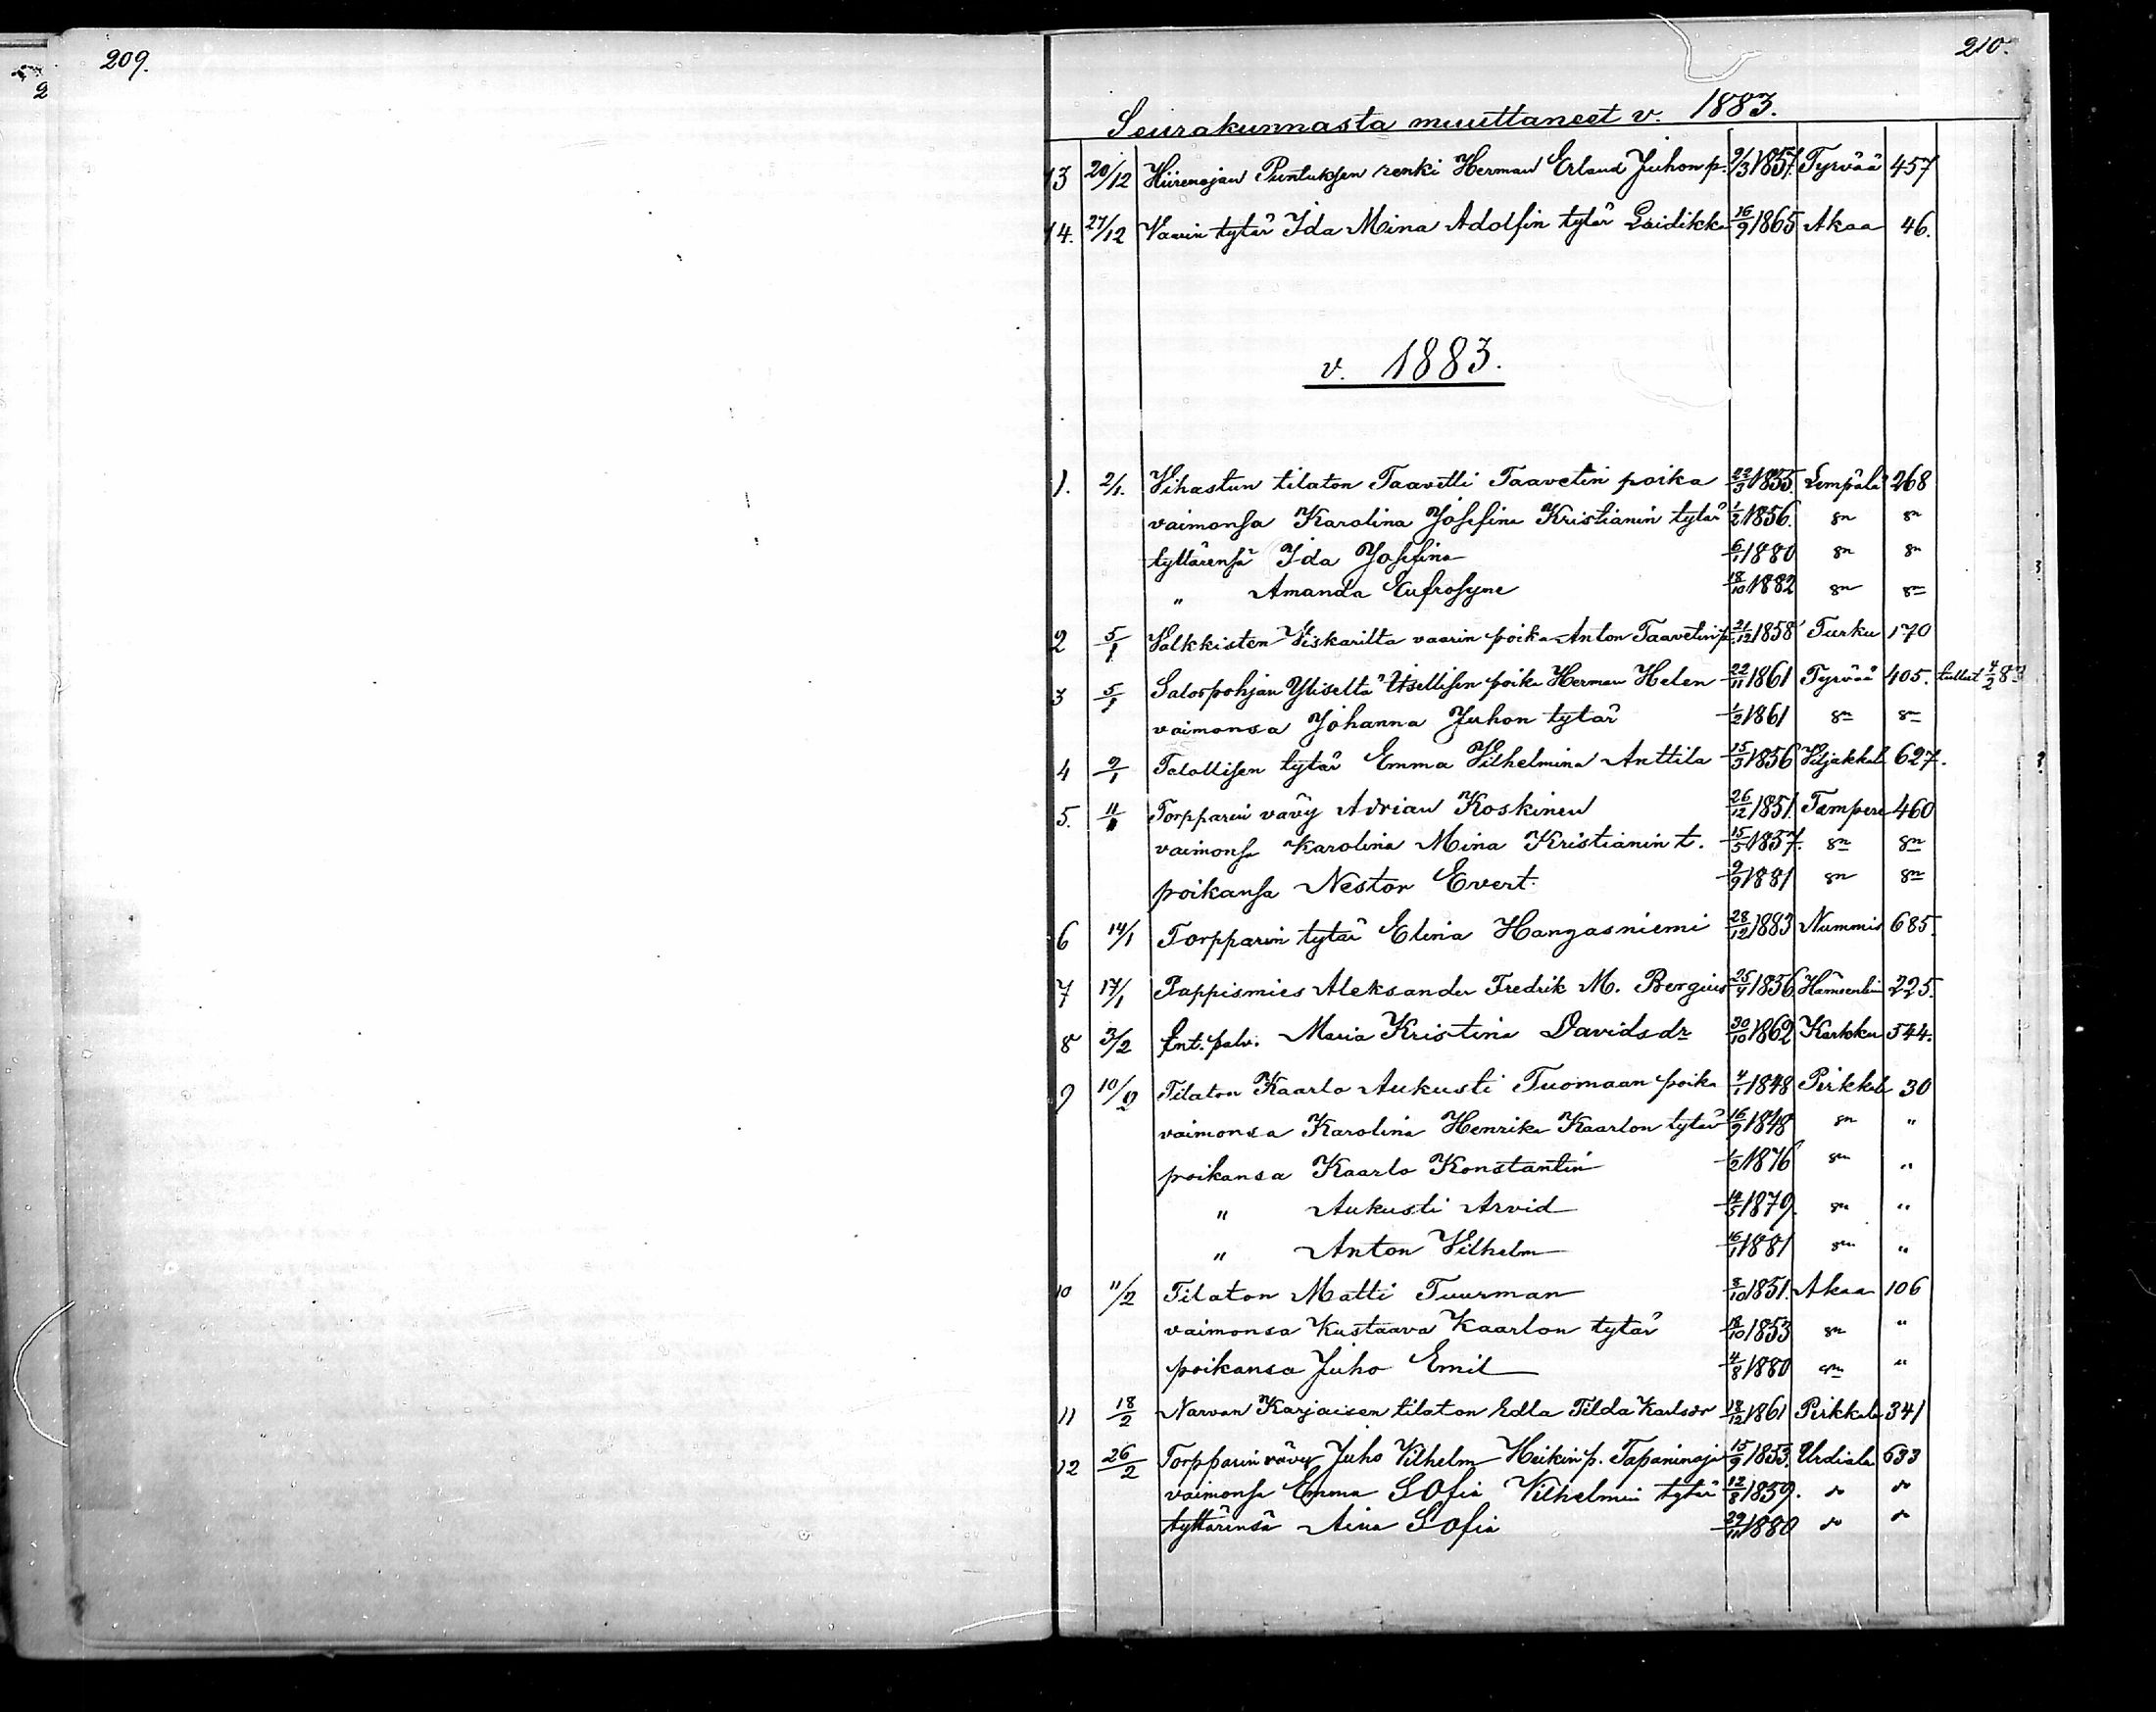 209.
2
210.
Seurakunnasta muuttaneet v. 1883.
13 20/12 Hiirenojan Puntuksen renki Herman Erland Juhon p. 9/3 1857. Tyrvää 457
14. 27/12 Vaarin tytär Ida Mina Adolfin tytär Laidikka 16/9 1865 Akaa 46.
v. 1883.
1. 2/1. Vihastun tilaton Taavetti Taavetin poika 22/3 1855. Lempälä 268
vaimonsa Karolina Josefina Kristianin tytär 1/2 1856. sn sn
tyttärensä Ida Josefina 6/1 1880 sn sn
" Amanda Eufrosyne 18/10 1882 sn sn
2 5/1 Salkkisten Viskarilta vaarin poika Anton Taavetin p. 21/12 1858 Turku 170
3 5/1 Salospohjan Yliseltä Itsellisen poika Herman Helen 22/11 1861 Tyrvää 405. tullut 4/2 83
vaimonsa Johanna Juhon tytär 1/2 1861 sn sn
4 9/1 Talollisen tytär Emma Vilhelmina Anttila 15/3 1856 Viljakkal 627.
5. 11/1 Torpparin vävy Adrian Koskinen 26/12 1851. Tampere 460
vaimonsa Karolina Mina Kristianin t. 15/5 1857. sn sn
poikansa Nestor Evert. 9/9 1881 sn sn
6 14/1 Torpparin tytär Elina Hangasniemi 28/12 1883 Nummis 685.
7 17/1 Pappismies Aleksander Fredrik M. Bergius 25/4 1856 Hämeenlin 225.
8 3/2 Ent. palv. Maria Kristina Davidsdr 30/10 1862 Karkku 544.
9 10/2 Tilaton Kaarlo Aukusti Tuomaan poika 4/1 1848 Pirkkala 30
vaimonsa Karolina Henrika Kaarlon tytär 16/9 1848 sn "
poikansa Kaarlo Konstantin 1/2 1876 sn "
" Aukusti Arvid 14/5 1879. sn "
" Anton Vilhelm 16/1 1881 sn "
10 11/2 Tilaton Matti Tuurman 8/10 1851. Akaa 106
vaimonsa Kustaava Kaarlon tytär 18/10 1853 sn "
poikansa Juho Emil 4/8 1880 sn "
11 18/2 Narvan Karjaisen tilaton Edla Tilda Karlsdr 18/12 1861 Pirkkala 341
12 26/2 Torpparin vävy Juho Vilhelm Heikin p. Tapaninaja 15/9 1853. Urdiala 633
vaimonsa Emma Sofia Vilhelmin tytär 12/8 1859. do do
tyttärensä Aina Sofia 29/11 1880 do do